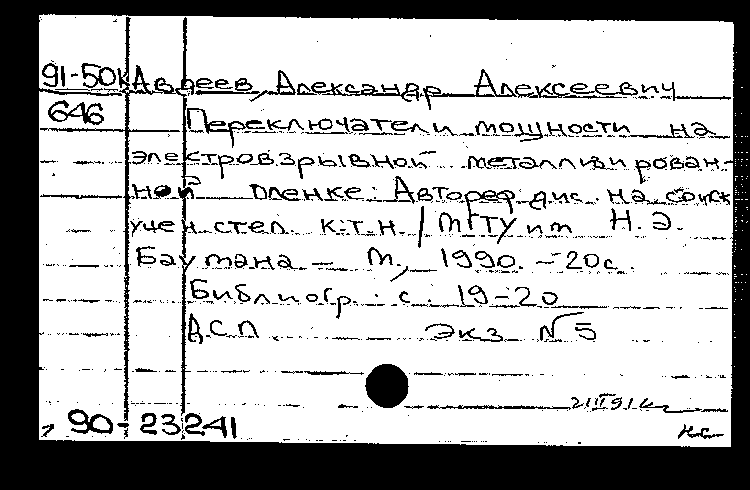 91-50к Авдеев, Александр Алексеевич
646 Переключатели мощности на
электровзрывной металлизирован-
ной пленке: Автореф. дис. на соиск.
учен. степ. к.т.н. / МГТУ им Н.Э.
Баумана – М., 1990. – 20с.
Библиогр.: с. 19-20
Д.С.П. Экз №5
90-23241